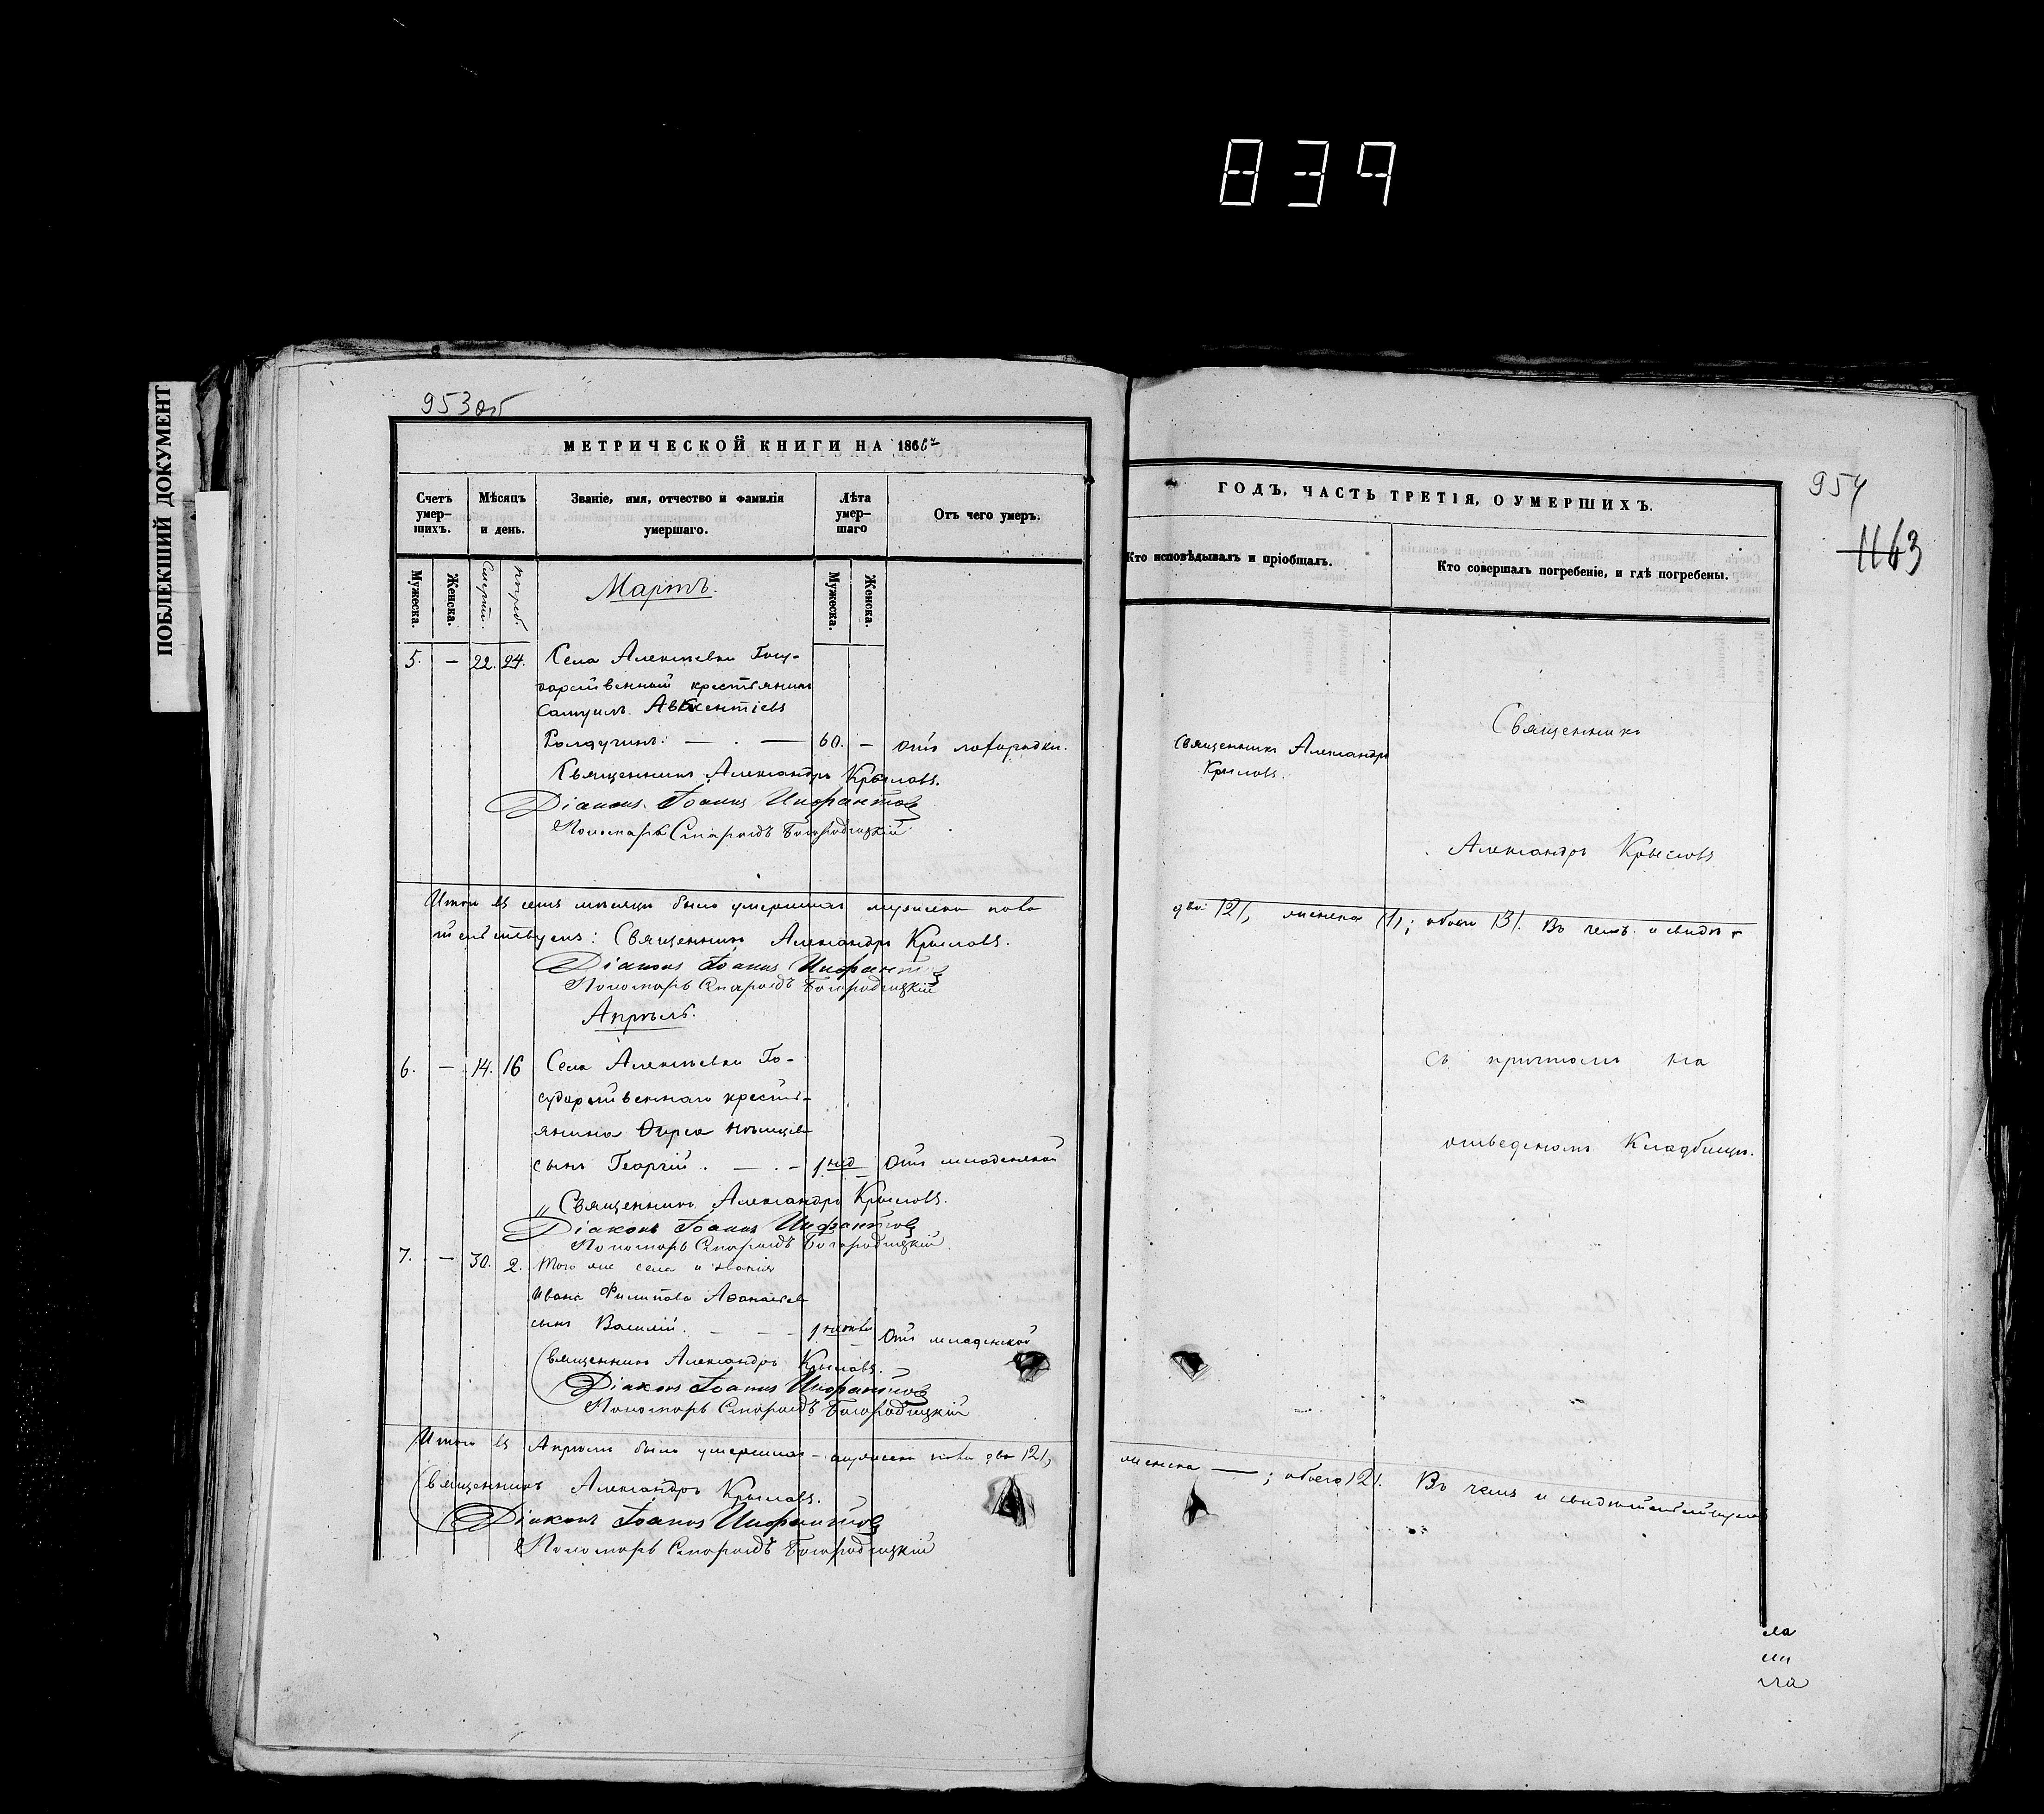 839
ПОБЛЕКШИЙ ДОКУМЕНТ
953об
МЕТРИЧЕСКОЙ КНИГИ НА 1866й
Счетъ умер-шихъ.
Мѣсяцъ и день.
Званіе, имя, отчество и фамилія умершаго.
Лѣта умер-шаго
Отъ чего умеръ.
Мужеска.
Женска.
Смерти.
Погреб.
Мартъ.
Мужеска.
Женска.
5. — 22. 24. Села Алексѣевки Госу-
дарственный крестьянинъ
Самуилъ Авксентіевъ
60. — отъ лихорадки.
Священникъ Александръ Крыловъ.
Діаконъ Іоаннъ Инфантов
Пономарь Смарагдъ Богородицкій
Итого въ семъ мѣсяцѣ было умершихъ мужеска пола
тельствуемъ: Священникъ Александръ Крыловъ.
Діаконъ Іоаннъ Инфантов
Пономарь Смарагдъ Богородицкій
Апрѣль.
6. — 14. 16 Села Алексѣевки Го-
сударственнаго кресть-
янина
сынъ Георгій. — . — 1 нед — Отъ младенской
„ Священникъ Александръ Крыловъ.
Діаконъ Іоаннъ Инфантов
Пономарь Смарагдъ Богородицкій
7. — 30. 2. Того же села и званія
Ивана Филипова
сынъ Василій. — — — 1 Отъ младенской
Священникъ Александръ Крыловъ.
Діаконъ Іоаннъ Инфантов
Пономарь Смарагдъ Богородицкій
Итого въ Апрѣлѣ было умершихъ — мужеска пола два /2/,
Священникъ Александръ Крыловъ.
Діаконъ Іоаннъ Инфантов
Пономарь Смарагдъ Богородицкій
954
1163
ГОДЪ, ЧАСТЬ ТРЕТІЯ, О УМЕРШИХЪ.
Кто исповѣдывалъ и пріобщалъ.
Кто совершалъ погребеніе, и гдѣ погребены.
Священникъ Александръ
Крыловъ.
Священникъ
Александръ Крыловъ
два /2/, женска /1/; обоего /3/. Въ чемъ и свидѣ-
съ причтомъ на
отведенномъ Кладбищѣ.
женска —; обоего /2/. Въ чемъ и свидѣтельствуемъ
ла
ли